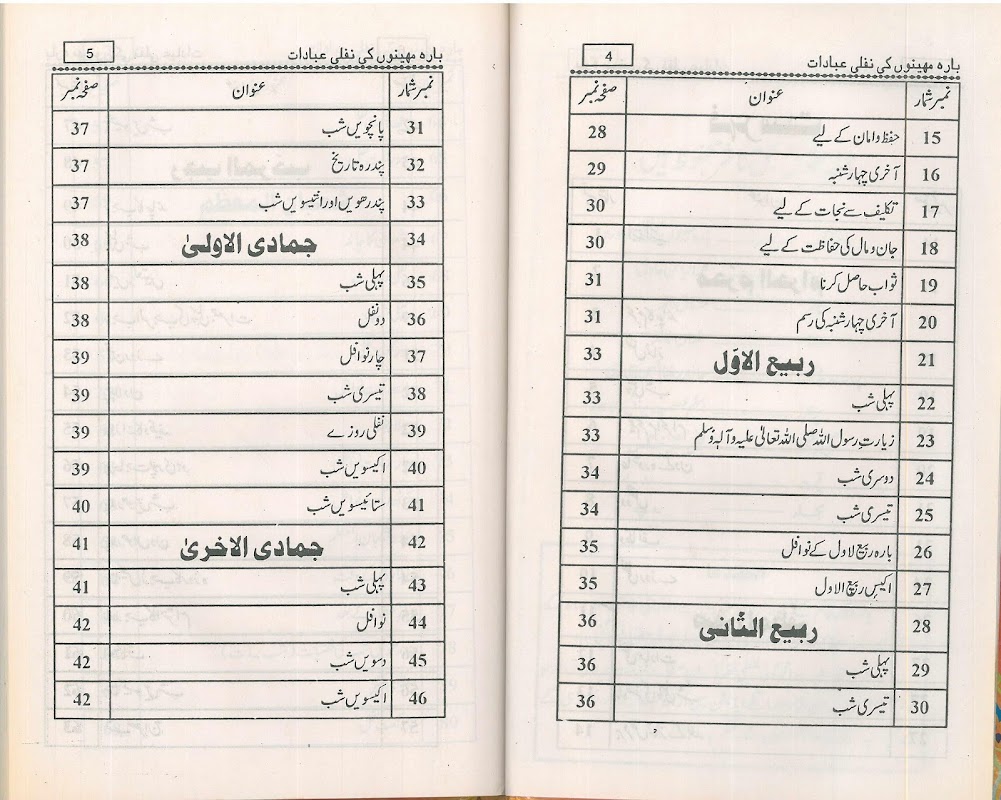 4 بارہ مہینوں کی نفلی عبادات
نمبر شمار عنوان صفحہ نمبر
15 حفظ وامان کے لیے 28
16 آخری چہار شنبہ 29
17 تکلیف سے نجات کے لیے 30
18 جان ومال کی حفاظت کے لیے 30
19 ثواب حاصل کرنا 31
20 آخری چہار شنبہ کی رسم 31
21 ربیع الاوّل 33
22 پہلی شب 33
23 زیارتِ رسول اللہ صلی اللہ تعالیٰ علیہ وآلہٖ وسلم 33
24 دوسری شب 34
25 تیسری شب 34
26 بارہ ربیع لاول کے نوافل 35
27 اکیس ربیع الاول 35
28 ربیع الثّانی 36
29 پہلی شب 36
30 تیسری شب 36
5 بارہ مہینوں کی نفلی عبادات
نمبر شمار عنوان صفحہ نمبر
31 پانچویں شب 37
32 پندرہ تاریخ 37
33 پندرھویں اور انتیسویں شب 37
34 جمادی الاولیٰ 38
35 پہلی شب 38
36 دو نفل 38
37 چار نوافل 39
38 تیسری شب 39
39 نفلی روزے 39
40 اکیسویں شب 39
41 ستائیسویں شب 40
42 جمادی الاخریٰ 41
43 پہلی شب 41
44 نوافل 42
45 دسویں شب 42
46 اکیسویں شب 42